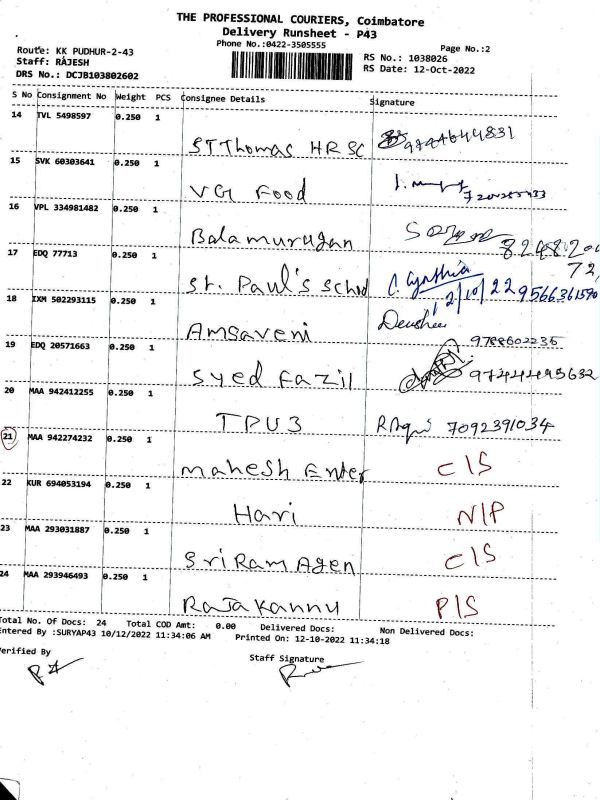 THE PROFESSIONAL COURIERS, Coimbatore
Delivery Runsheet - P43
Phone No.:0422-3505555
Page No.:2
Route: KK PUDHUR-2-43
Staff: RAJESH
DRS No.: DCJB103802602
RS No.: 1038026
RS Date: 12-Oct-2022
S No Consignment No Weight PCS Consignee Details Signature
14 TVL 5498597 0.250 1
ST Thomas HR SC
15 SVK 60303641 0.250 1
VG Food
16 VPL 334981482 0.250 1
Balamurugan
17 EDQ 77713 0.250 1
St. Paul's School C. Cynthia
12/10/22 9566361590
18 IXM 502293115 0.250 1
Amsaveni 9788602236
19 EDQ 20571663 0.250 1
Syed Fazil
20 MAA 942412255 0.250 1
TPU3 7092391034
21 MAA 942274232 0.250 1
Mahesh Enter C/S
22 KUR 694053194 0.250 1
Hari N/P
23 MAA 293031887 0.250 1
Sri Ram Agen C/S
24 MAA 293946493 0.250 1
RajaKannu P/S
Total No. Of Docs: 24 Total COD Amt: 0.00 Delivered Docs: Non Delivered Docs:
Entered By :SURYAP43 10/12/2022 11:34:06 AM Printed On: 12-10-2022 11:34:18
Verified By
Staff Signature